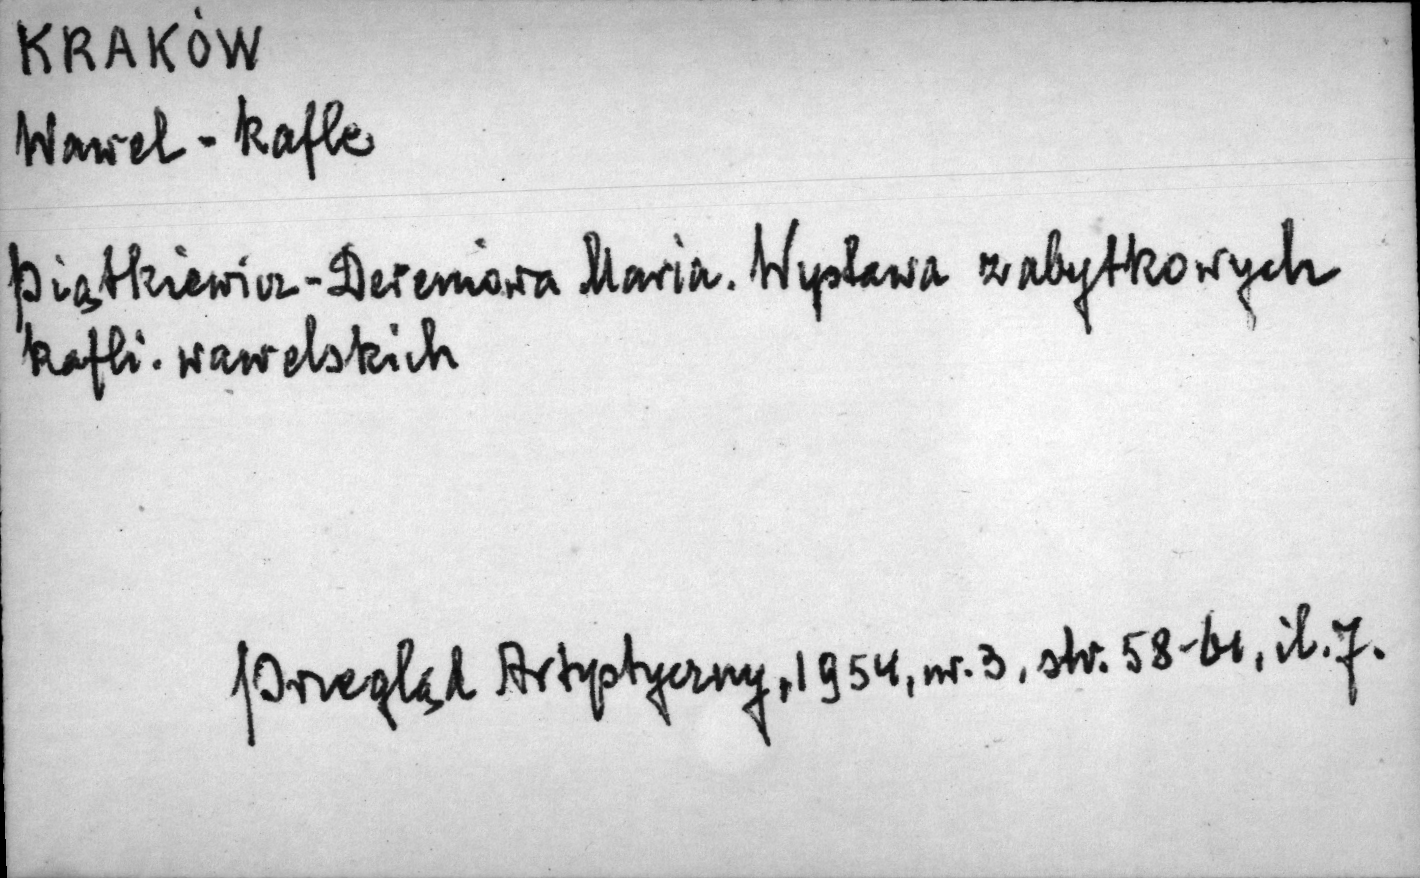 KRAKÓW
Wawel - kafle
Piątkiewicz-Dereniowa Maria. Wystawa zabytkowych
kafli wawelskich
Przegląd Artystyczny, 1954, nr. 3, str. 58-61, il. 7.